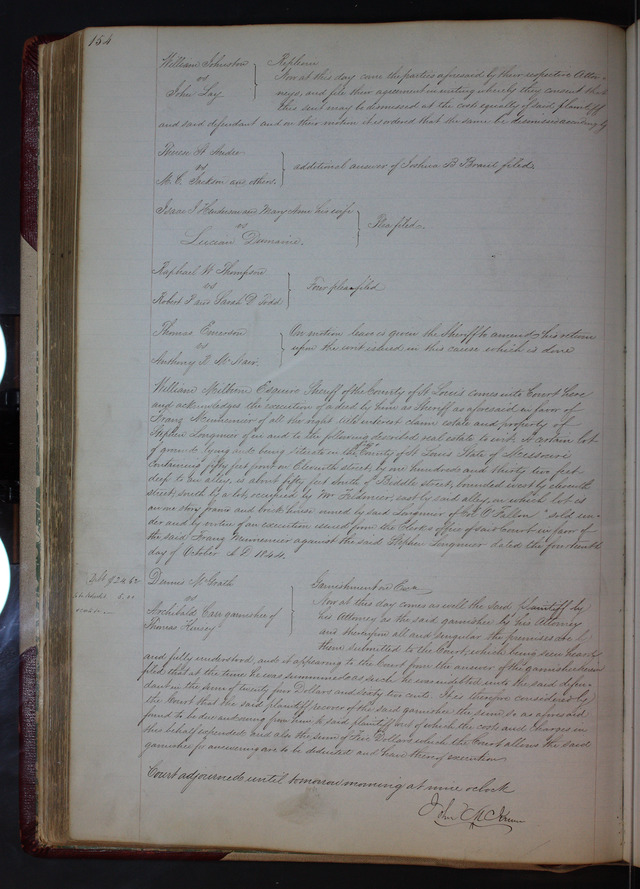 154
William Johnston
vs
John Lay
Replevin
Now at this day came the parties aforesaid by their respective Attor-
neys, and file their agreement in writing whereby they consent that
this suit may be dismissed at the cost equally of said plaintiff
and said defendant and on their motion it is ordered that the same be dismissed accordingly
vs
M. C. Jackson and others.
additional answer of Joshua B Brant filed.
Isaac J Henderson and Mary Ann his wife
vs
Lucien Dumaine.
Plea filed.
Raphael W Thompson
vs
Robert J and Sarah D Todd
Four pleas filed
Thomas Emerson
vs
Anthony R. McNair.
On motion leave is given the Sheriff to amend his return
upon the writ issued in this cause which is done
William Milburn Esquire Sheriff of the County of St Louis comes into Court here
and acknowledges the execution of a deed by him as Sheriff as aforesaid in favor of
Franz of all the right title interest claim estate and property of
Stephen Longmier of in and to the following described real estate to wit: A certain lot
of ground lying and being situate in the County of St Louis State of Missouri
containing fifty feet front on Eleventh street, by one hundred and thirty two feet
deep to an alley, is about fifty feet South of Biddle street, bounded west by eleventh
street, south by a lot, occupied by Mr east by said alley, on which lot is
an one story frame and brick house owned by said Longmier of C Fallon" sold un-
der and by virtue of an execution issued from the Clerks office of said Court in favor of
the said Franz against the said Stephen Longmier dated the fourteenth
day of October A D 1844.
Debt $24.62
5.00
Dennis McGrath
vs
Archibald Carr garnishee of
Thomas Kinsey
Garnishment on
Now at this day comes as well the said plaintiff by
his Attorney as the said garnishee by his Attorney
and thereupon all and singular the premises are by
them submitted to the Court, which being seen heard
and fully understood, and it appearing to the Court from the answer of the garnishee herein
filed that at the time he was summoned as such he was indebted unto the said defen-
dant in the sum of twenty four Dollars and sixty two cents. It is therefore considered by
the Court that the said plaintiff recover of the said garnishee the sum so as aforesaid
found to be due and owing from him to said plaintiff out of which the costs and charges in
this behalf expended and also the sum of Five Dollars which the Court allows the said
garnishee for answering are to be deducted and have thereof execution
Court adjourned until tomorrow morning at nine oclock
John M